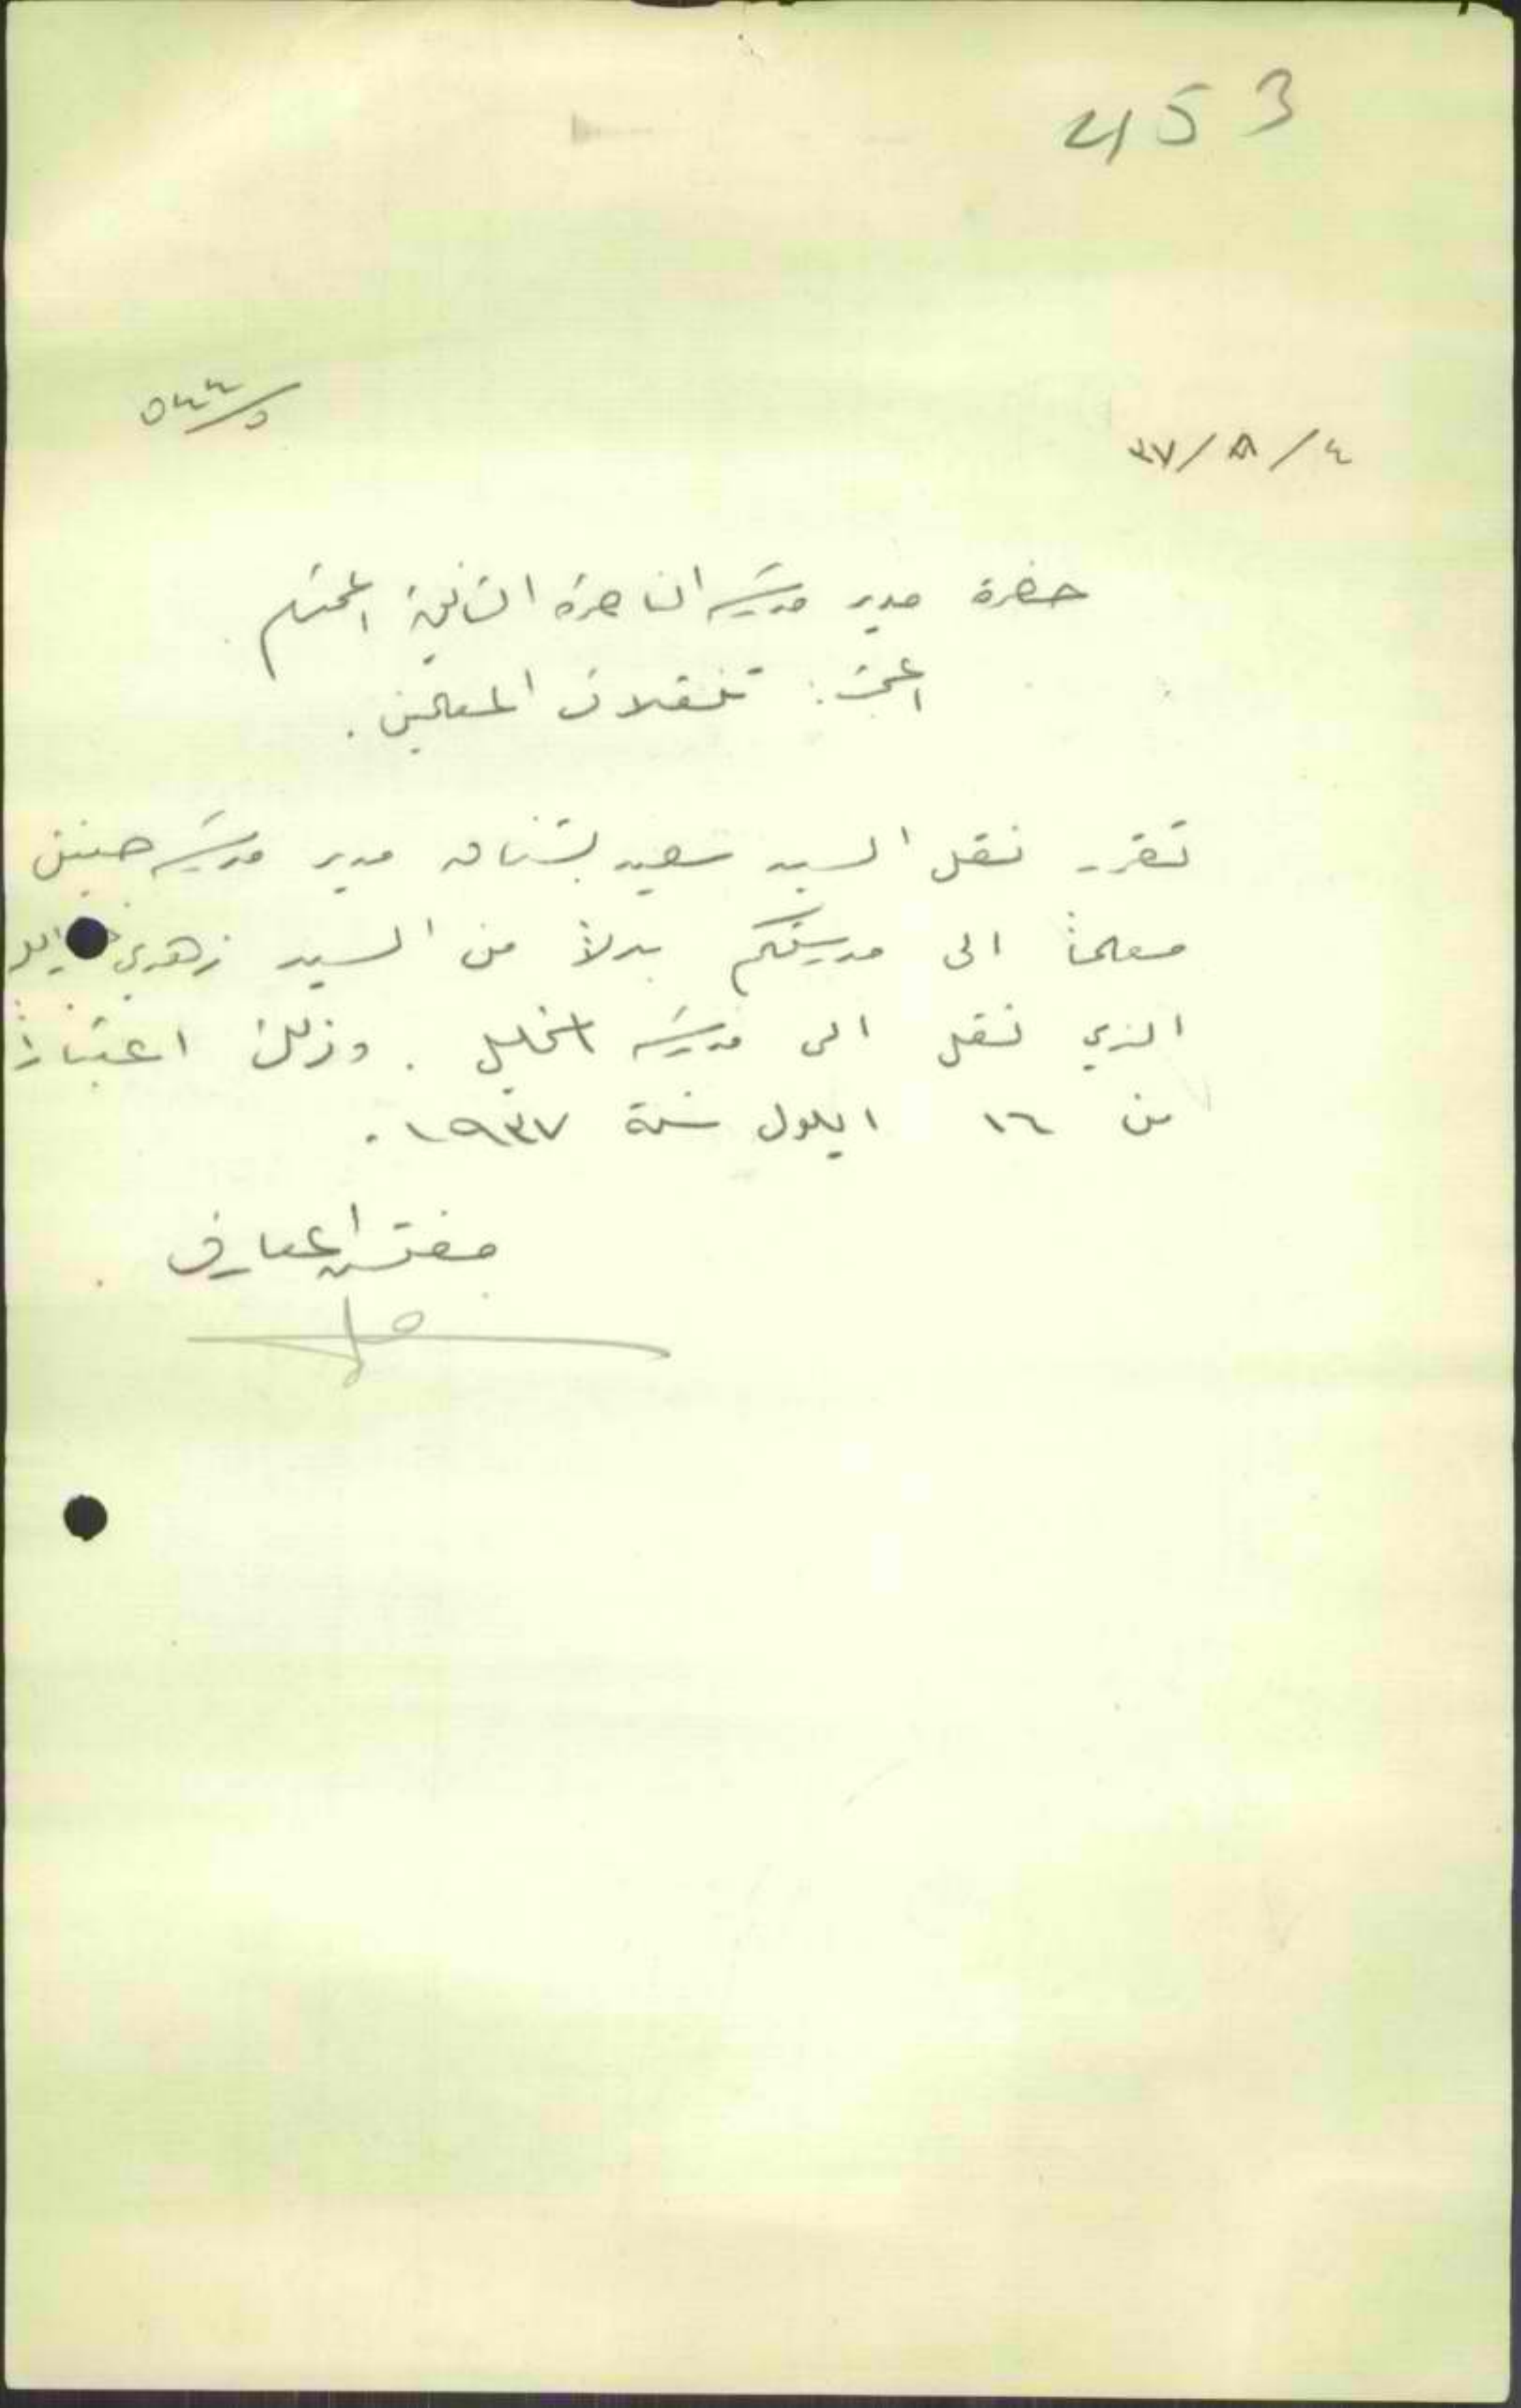 453
٣٧/٨/٤
٥٤٤/د
حضرة مدير مدرسة الناصرة الثانية المحترم
المبحث : تنقلات المعلمين .
تقرر نقل السيد سعيد بشناق مدير مدرسة
معلماً الى مدرستكم بدلاً من السيد زهدي
الذي نقل الى مدرسة الخليل . وذلك اعتباراً
من ١٦ ايلول سنة ١٩٣٧ .
مفتش المعارف